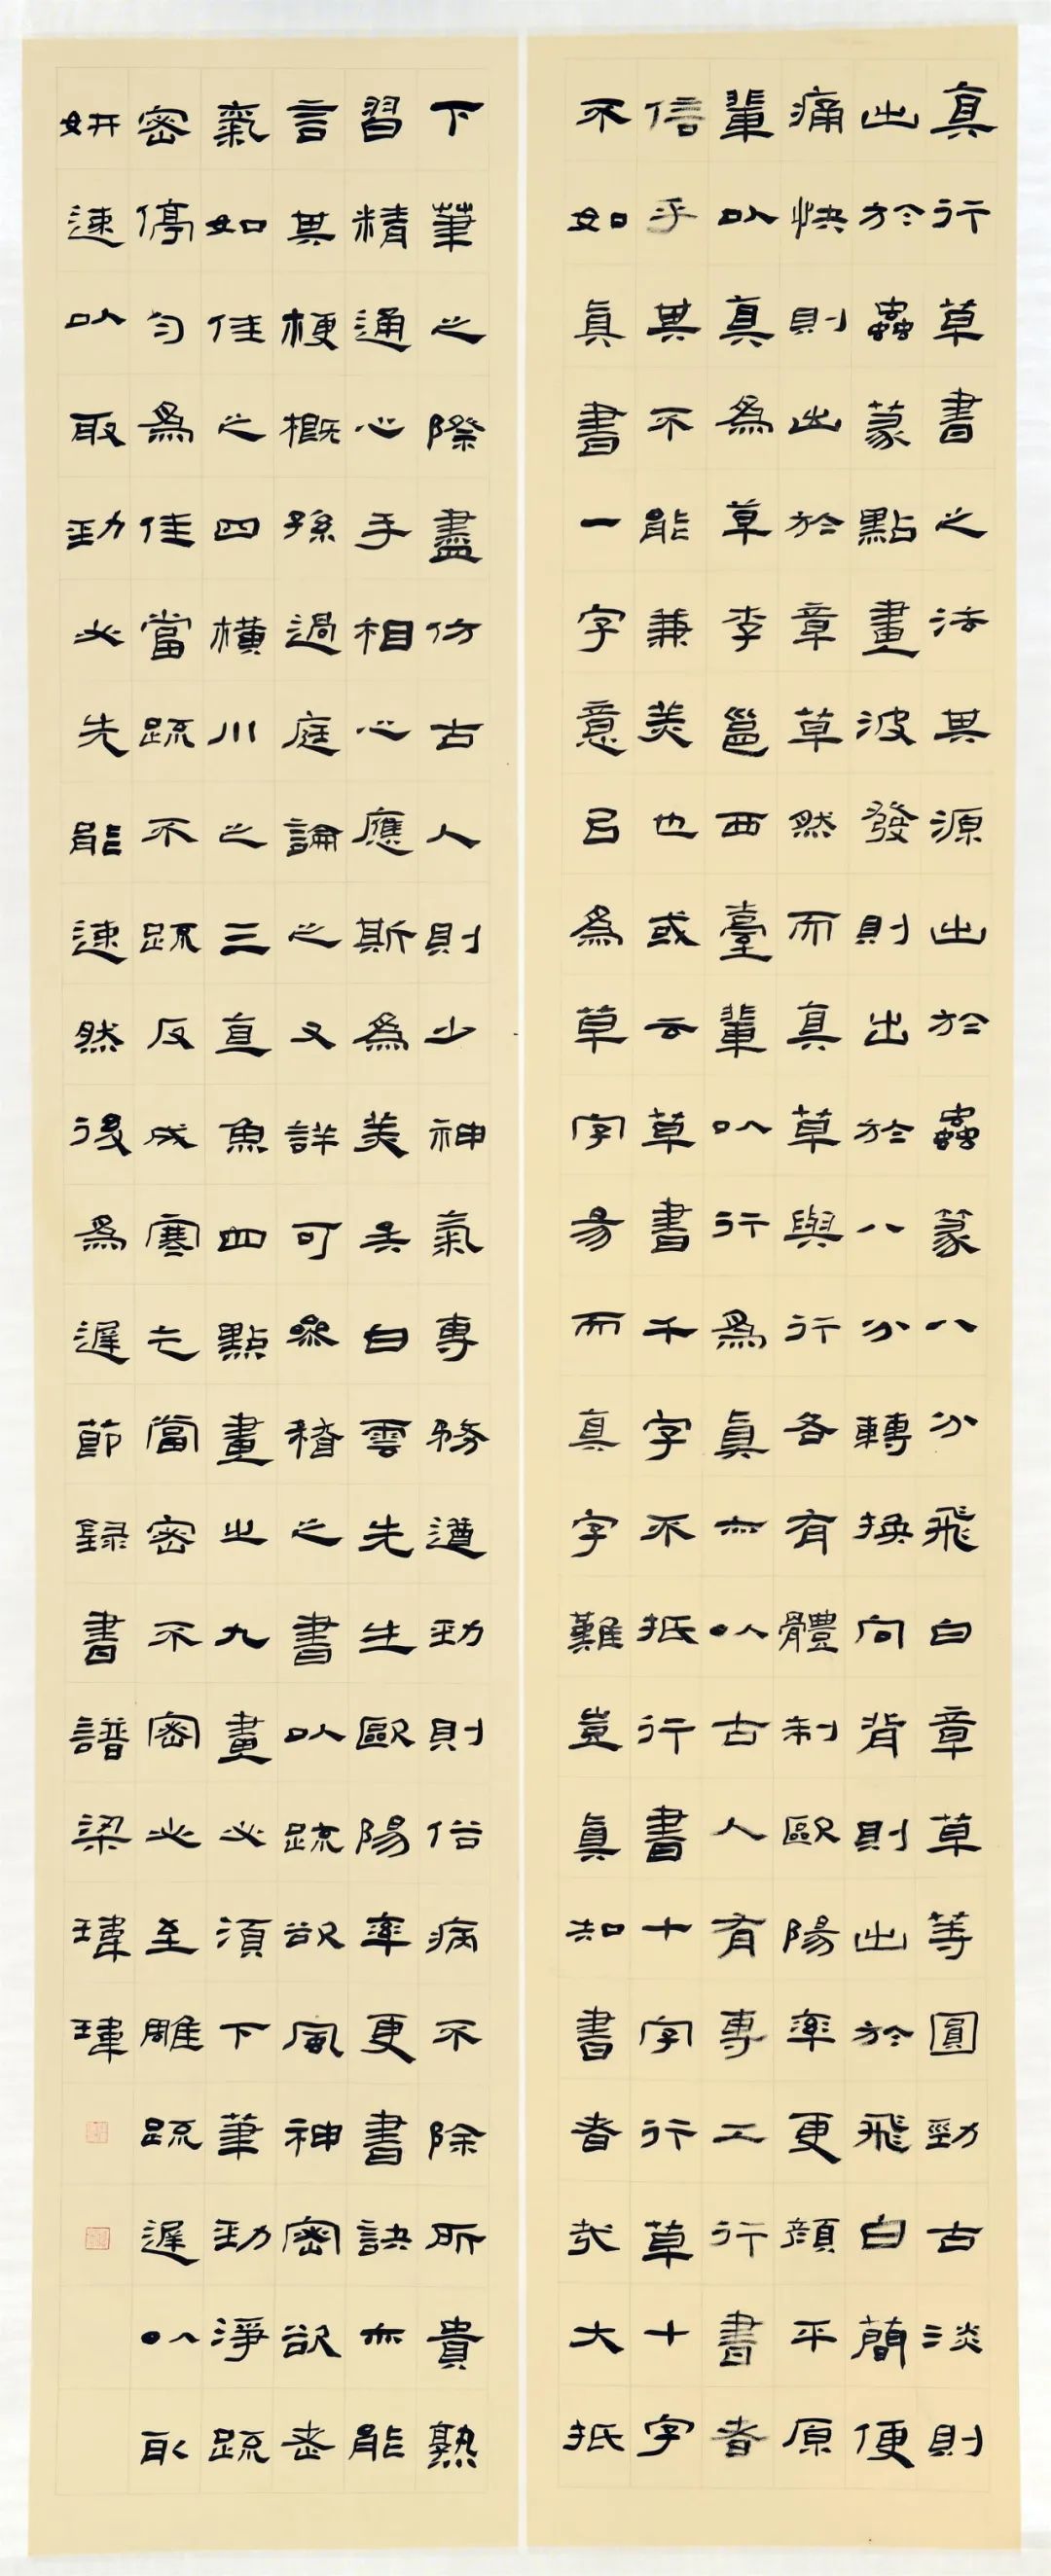 真行草書之法其源出於蟲篆八分飛白章草等圓勁古淡則
出於蟲篆點畫波發則出於八分轉換向背則出於飛白簡便
痛快則出於章草然而真草與行各有體制歐陽率更顏平原
輩以真為草李邕西臺輩以行為真亦以古人有專工行書者
信乎其不能兼美也或云草書千字不抵行書十字行草十字
不如真書一字意㠯為草字易而真字難豈真知書者哉大抵
下筆之際盡仿古人則少神氣專務遒勁則俗病不除所貴熟
習精通心手相心應斯為美矣白雲先生歐陽率更書訣亦能
言其梗概孫過庭論之又詳可參稽之書以疏欲風神密欲老
氣如佳之四橫川之三直魚四點畫之九畫必須下筆勁淨疏
密停勻為佳當疏不疏反成寒乞當密不密必至雕疏遲以取
妍速以取勁必先能速然後為遲節錄書譜梁瑋瑋